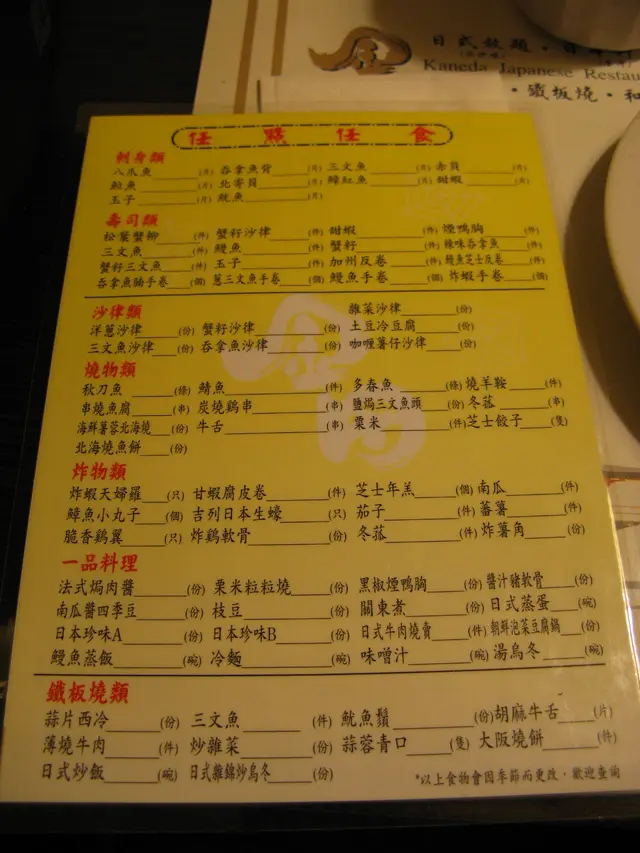 日式放題
Kaneda Japanese Restau
鐵板燒・和
任點任食
刺身類
八爪魚____(片) 吞拿魚背____(片) 三文魚____(片) 赤貝____(片)
鯛魚____(片) 北寄貝____(片) 鱆紅魚____(片) 甜蝦____(片)
玉子____(片) 魷魚____(片)
壽司類
松葉蟹柳____(件) 蟹籽沙律____(件) 甜蝦____(件) 煙鴨胸____(份)
三文魚____(件) 鰻魚____(件) 蟹籽____(件) 辣味吞拿魚____(件)
蟹籽三文魚____(件) 玉子____(件) 加州反卷____(件) 鰻魚芝士反卷____(件)
吞拿魚腩手卷____(個) 蔥三文魚手卷____(個) 鰻魚手卷____(個) 炸蝦手卷____(個)
沙律類
雜菜沙律____(份)
洋蔥沙律____(份) 蟹籽沙律____(份) 土豆冷豆腐____(份)
三文魚沙律____(份) 吞拿魚沙律____(份) 咖喱薯仔沙律____(份)
燒物類
秋刀魚____(條) 鯖魚____(件) 多春魚____(條) 燒羊鞍____(件)
串燒魚腐____(串) 炭燒鷄串____(串) 鹽焗三文魚頭____(份) 冬菇____(串)
海鮮薯蓉北海燒____(份) 牛舌____(串) 粟米____(件) 芝士餃子____(隻)
北海燒魚餅____(份)
炸物類
炸蝦天婦羅____(只) 甘蝦腐皮卷____(件) 芝士年羔____(個) 南瓜____(件)
鱆魚小丸子____(個) 吉列日本生蠔____(只) 茄子____(件) 蕃薯____(件)
脆香鷄翼____(只) 炸鷄軟骨____(份) 冬菇____(件) 炸薯角____(份)
一品料理
法式焗肉醬____(份) 粟米粒粒燒____(份) 黑椒煙鴨胸____(份) 醬汁豬軟骨____(份)
南瓜醬四季豆____(份) 枝豆____(份) 關東煮____(份) 日式蒸蛋____(碗)
日本珍味A____(份) 日本珍味B____(份) 日式牛肉燒賣____(件) 朝鮮泡菜豆腐鍋____(份)
鰻魚蒸飯____(碗) 冷麵____(碗) 味噌汁____(碗) 湯烏冬____(碗)
鐵板燒類
蒜片西冷____(份) 三文魚____(件) 魷魚鬚____(份) 胡麻牛舌____(片)
薄燒牛肉____(件) 炒雜菜____(份) 蒜蓉青口____(隻) 大阪燒餅____(件)
日式炒飯____(碗) 日式雜錦炒烏冬____(份)
*以上食物會因季節而更改，歡迎查詢